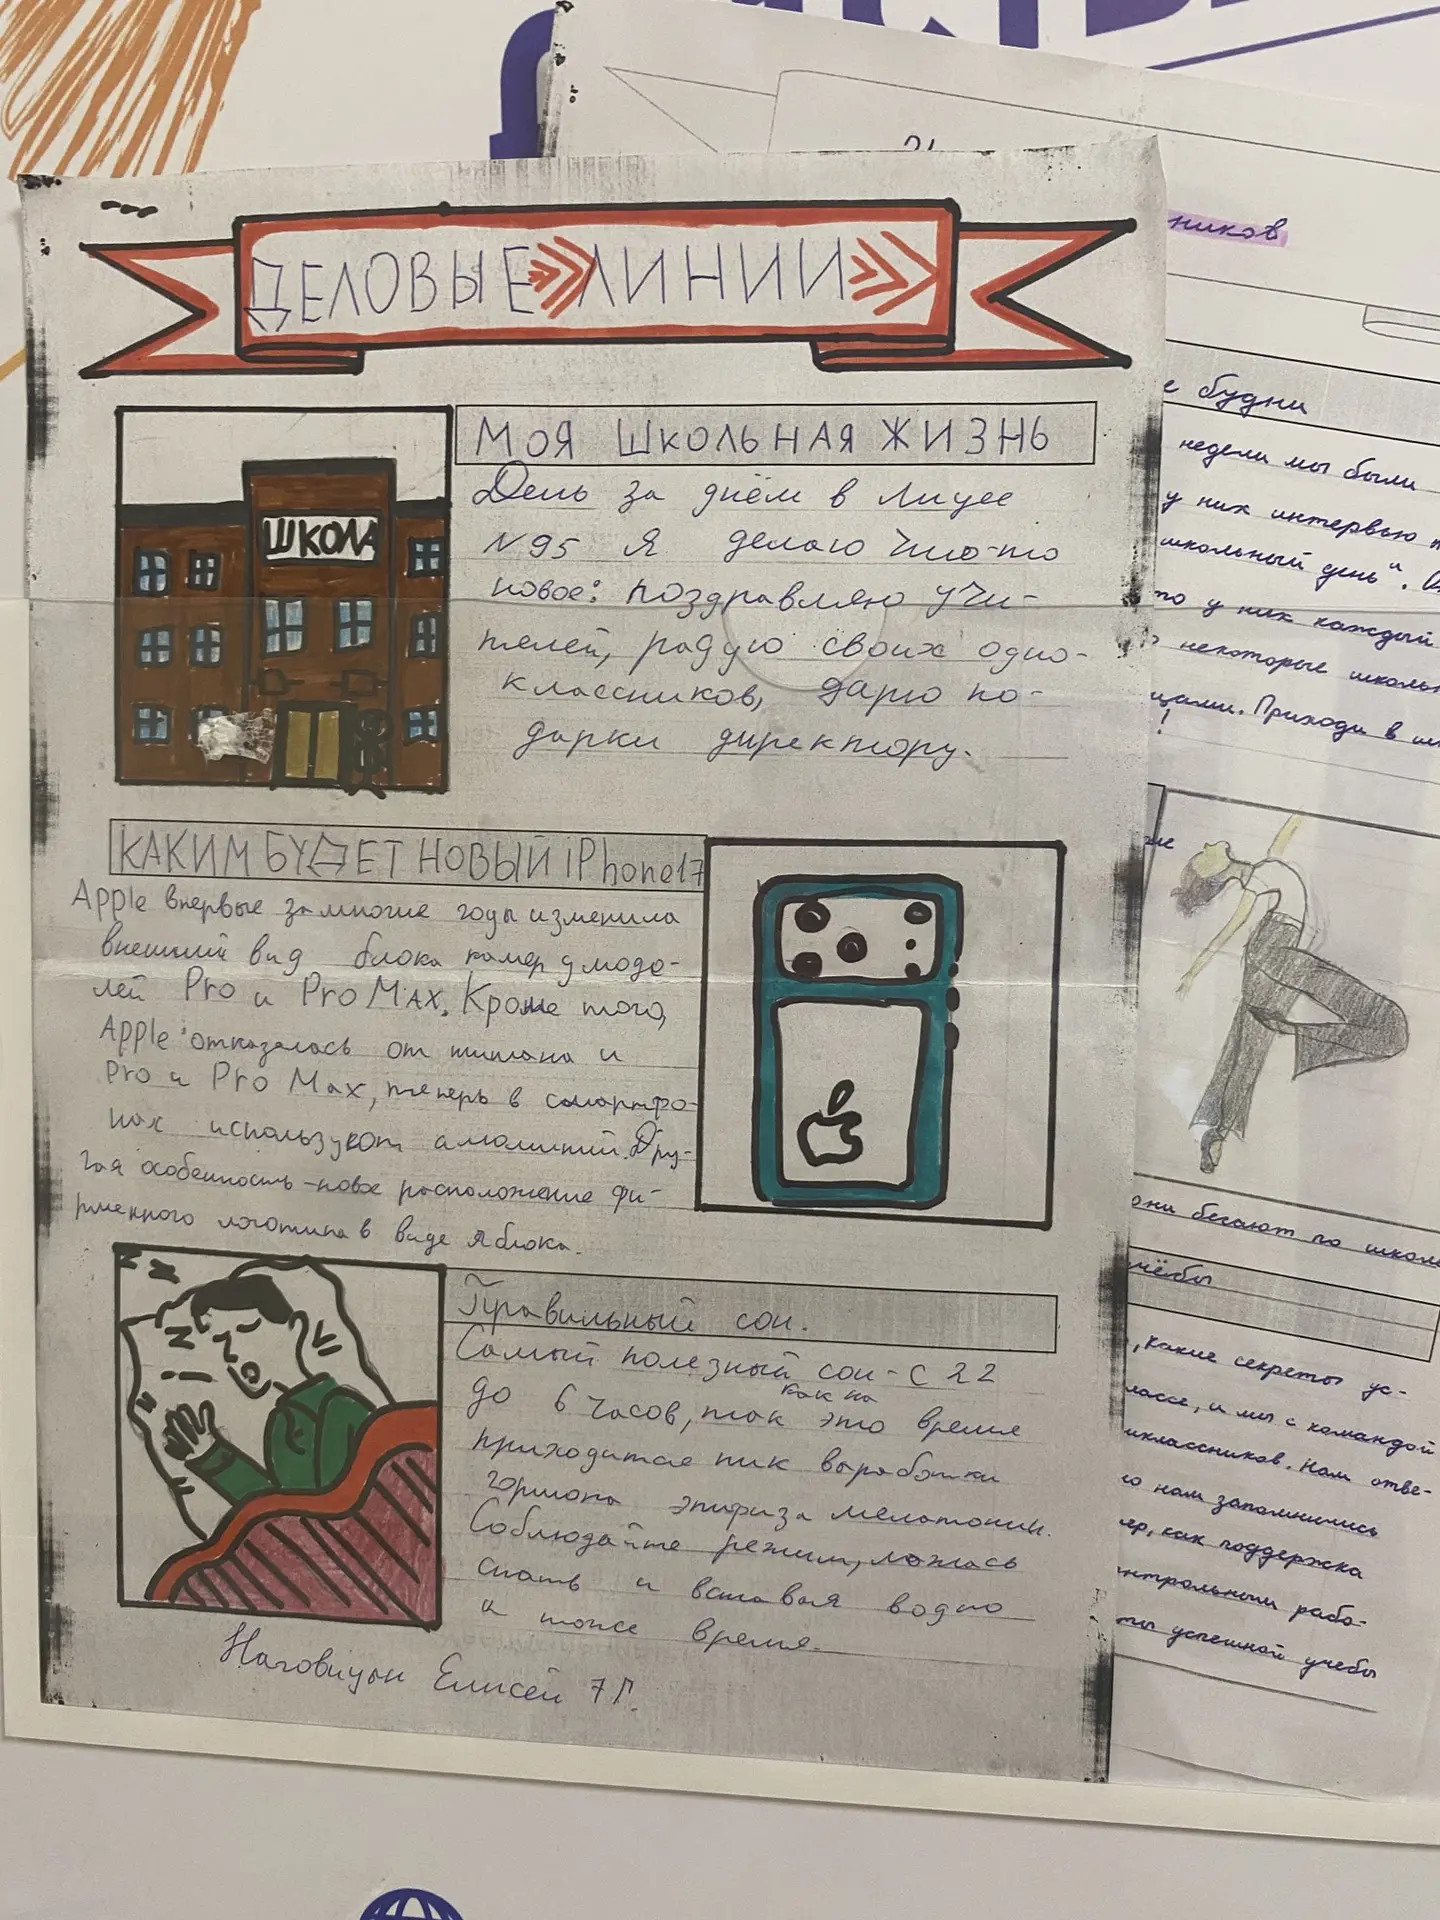 ДЕЛОВЫЕ ЛИНИИ
ШКОЛА
МОЯ ШКОЛЬНАЯ ЖИЗНЬ
День за днём в Лицее
N95 Я делаю что-то
новое: поздравляю учи-
телей, радую своих одно-
классников, дарю по-
дарки директору.
КАКИМ БУДЕТ НОВЫЙ iPhone17
Apple впервые за многие годы изменила
внешний вид блока камер у моде-
лей Pro и Pro MAX. Кроме того,
Apple отказалась от титана и
Pro и Pro Max, теперь в смартфо-
нах используют алюминий. Дру-
гая особенность - новое расположение фи-
рменного логотипа в виде яблока.
Правильный сон.
Самый полезный сон - с 22
до 6 часов, так как на это время
приходится пик выработки
гормона эпифиза мелатонин.
Соблюдайте режим, ложась
спать и вставая водно
и тоже время.
Наговицын Елисей 7Г.
ников
е будни
недели мы были
у них интервью
школьный день".
то у них каждый
некоторые
щами. Приходи в
!
они бегают по школе
учёбы
, какие секреты ус-
лассе, и мы с командой
иклассников. Нам отве-
о нам запомнились
ер, как поддержка
нтрольным рабо-
ты успешной учебы